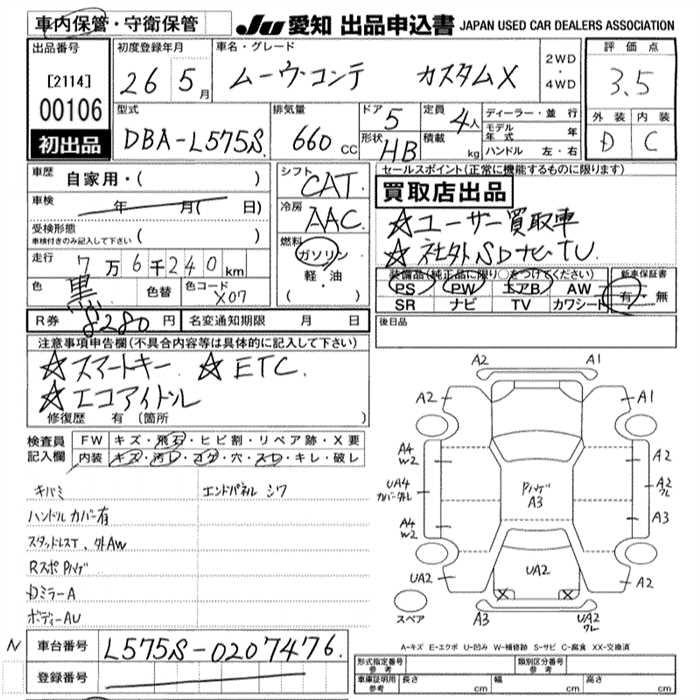 車内保管・守衛保管
JU 愛知 出品申込書 JAPAN USED CAR DEALERS ASSOCIATION
出品番号 [2114] 00106 初出品
初度登録年月 26 5月
車名・グレード ムーヴコンテ カスタムX
2WD・4WD
評価点 3.5
外装 D 内装 C
型式 DBA-L575S
排気量 660 CC
ドア 5 形状 HB
定員 4人 積載 kg
ディーラー・並行
モデル年式 年
ハンドル 左・右
車歴 自家用・( )
車検 年 月( 日)
受検形態 車検付きのみ記入して下さい ( )
走行 7万6千240km
色 黒 色替 色コード X07
R券 8280円 名変通知期限 月 日
シフト CAT
冷房 AAC
燃料 ガソリン 軽・油 ( )
セールスポイント(正常に機能するものに限ります)
買取店出品
☆ユーザー買取車
☆社外SDナビTV
装備品(純正品に限り○をつけてください)
PS PW エアB AW
SR ナビ TV カワシート
新車保証書 有・無
後日品
注意事項申告欄(不具合内容等は具体的に記入して下さい)
☆スマートキー ☆ETC
☆エコアイドル
修復歴 有 (箇所 )
検査員記入欄
FW キズ・飛石・ヒビ割・リペア跡・X要
内装 キズ・汚レ・コゲ・穴・スレ・キレ・破レ
キバミ
ハンドルカバー有
スタッドレスT、外AW
RスポPハゲ
Dミラー A
ボディーAU
エンドパネル シワ
A2 A1
A2 A1
A4 W2 A2
UA4 カバー外レ Pハゲ A3 A2 ワレ
A4 W2 A3
UA2 UA2 A2
スペア A3 UA2 ワレ
A-キズ E-エクボ U-凹み W-補修跡 S-サビ C-腐食 XX-交換済
N 車台番号 L575S-0207476
登録番号
形式指定番号 参考 類別区分番号 参考
車庫証明用 参考 長さ cm 幅 cm 高さ cm